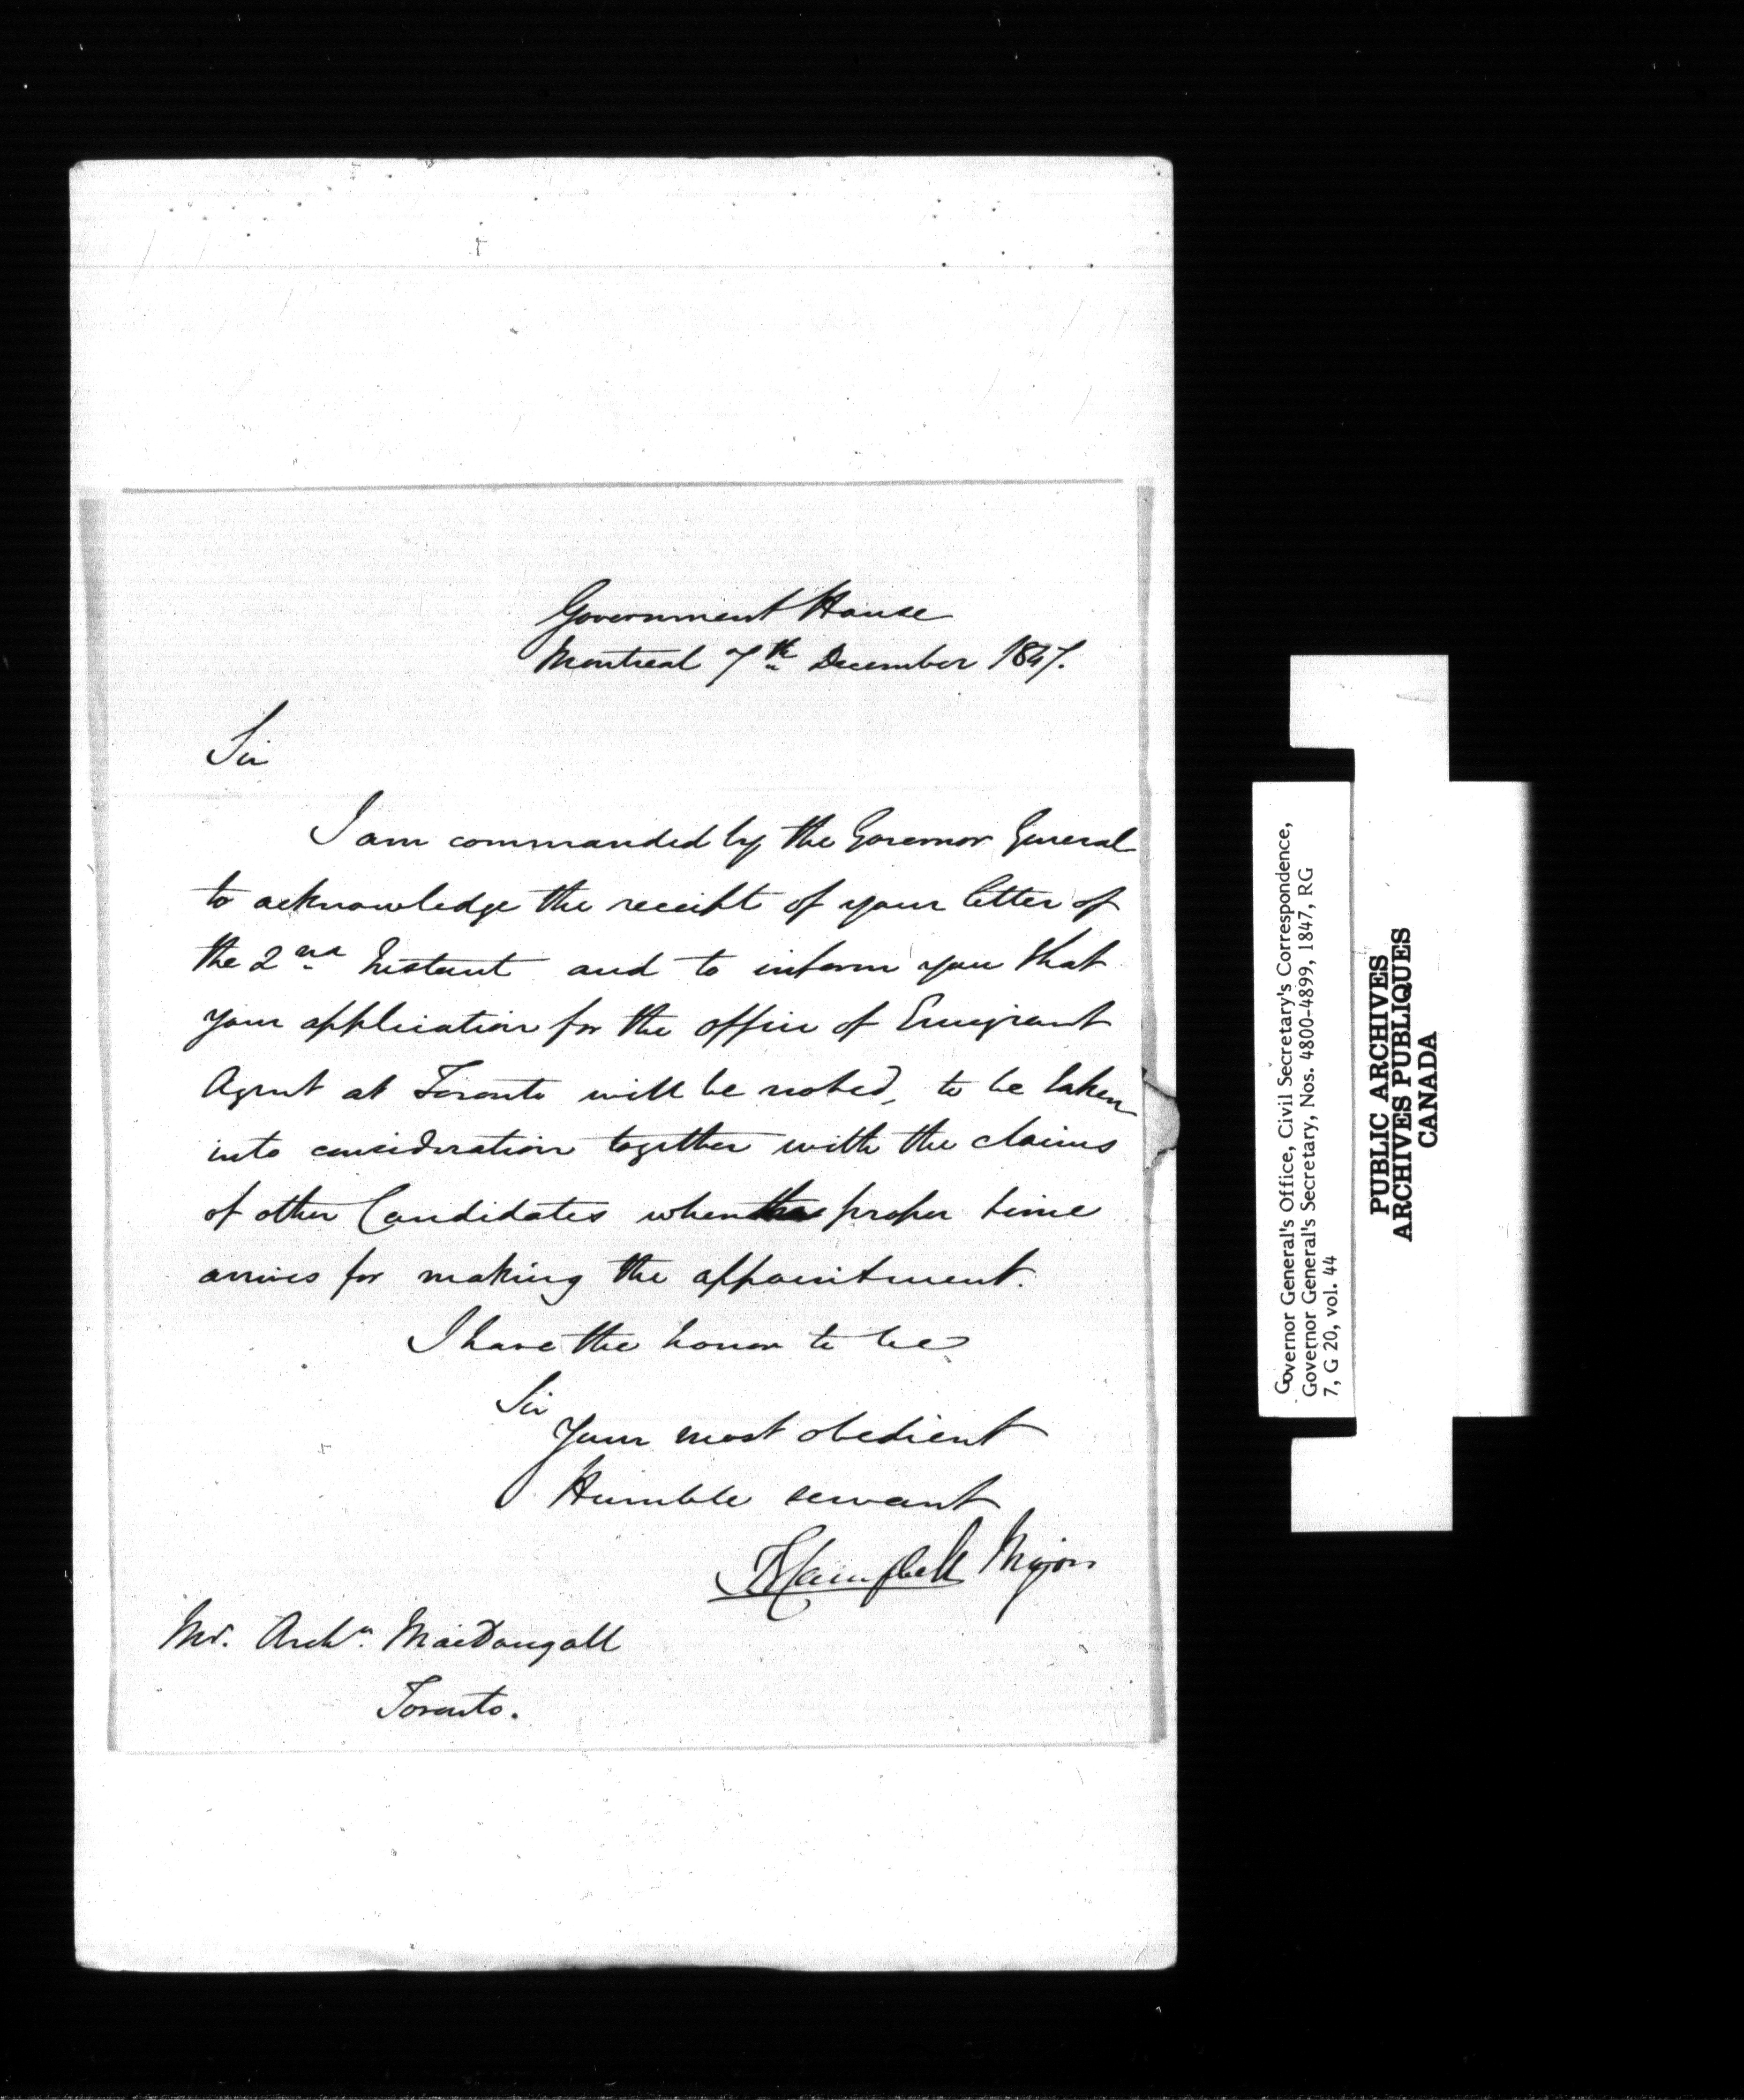 Government House
Montreal 7th December 1847.
Sir
I am commanded by the Governor General
to acknowledge the receipt of your letter of
the 2nd Instant and to inform you that
your application for the office of Emigrant
Agent at Toronto will be noted, to be taken
into consideration together with the claims
of other Candidates when the proper time
arrives for making the appointment.
I have the honor to be
Sir
Your most obedient
Humble servant
Campbell Major
Mr. Archd. MacDougall
Toronto.
Governor General's Office, Civil Secretary's Correspondence,
Governor General's Secretary, Nos. 4800-4899, 1847, RG
7, G 20, vol. 44
PUBLIC ARCHIVES
ARCHIVES PUBLIQUES
CANADA